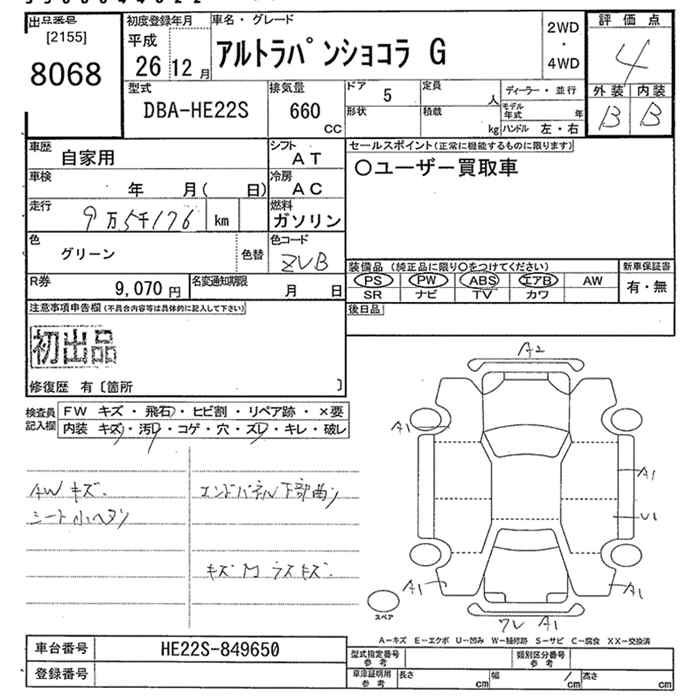 出品番号
[2155]
8068
初度登録年月
平成
26 12 月
車名・グレード
アルトラパンショコラ G
2WD
・
4WD
評価点
4
外装 内装
B B
型式
DBA-HE22S
排気量
660
CC
ドア 5
形状
定員 人
積載 kg
ディーラー・並行
モデル年式 年
ハンドル 左・右
車歴
自家用
シフト
AT
車検
年 月( 日)
冷房
AC
走行
9万5千176 km
燃料
ガソリン
色
グリーン
色替
色コード
ZVB
R券
9,070 円
名変通知期限
月 日
セールスポイント(正常に機能するものに限ります)
○ユーザー買取車
装備品 (純正品に限り○をつけてください)
PS PW ABS エアB AW
SR ナビ TV カワ
新車保証書
有・無
後日品
注意事項申告欄(不具合内容等は具体的に記入して下さい)
初出品
修復歴 有〔箇所 〕
検査員記入欄
FW キズ・飛石・ヒビ割・リペア跡・×要
内装 キズ・汚レ・コゲ・穴・スレ・キレ・破レ
AWキズ.
シート小ヘタリ
エンドパネル下部曲り
A2
A1
A1
U1
A1
A1
A1
スペア
A−キズ E−エクボ U−凹み W−補修跡 S−サビ C−腐食 XX−交換済
車台番号
HE22S-849650
登録番号
型式指定番号
参考
類別区分番号
参考
車庫証明用
参考
長さ cm
幅 cm
高さ cm